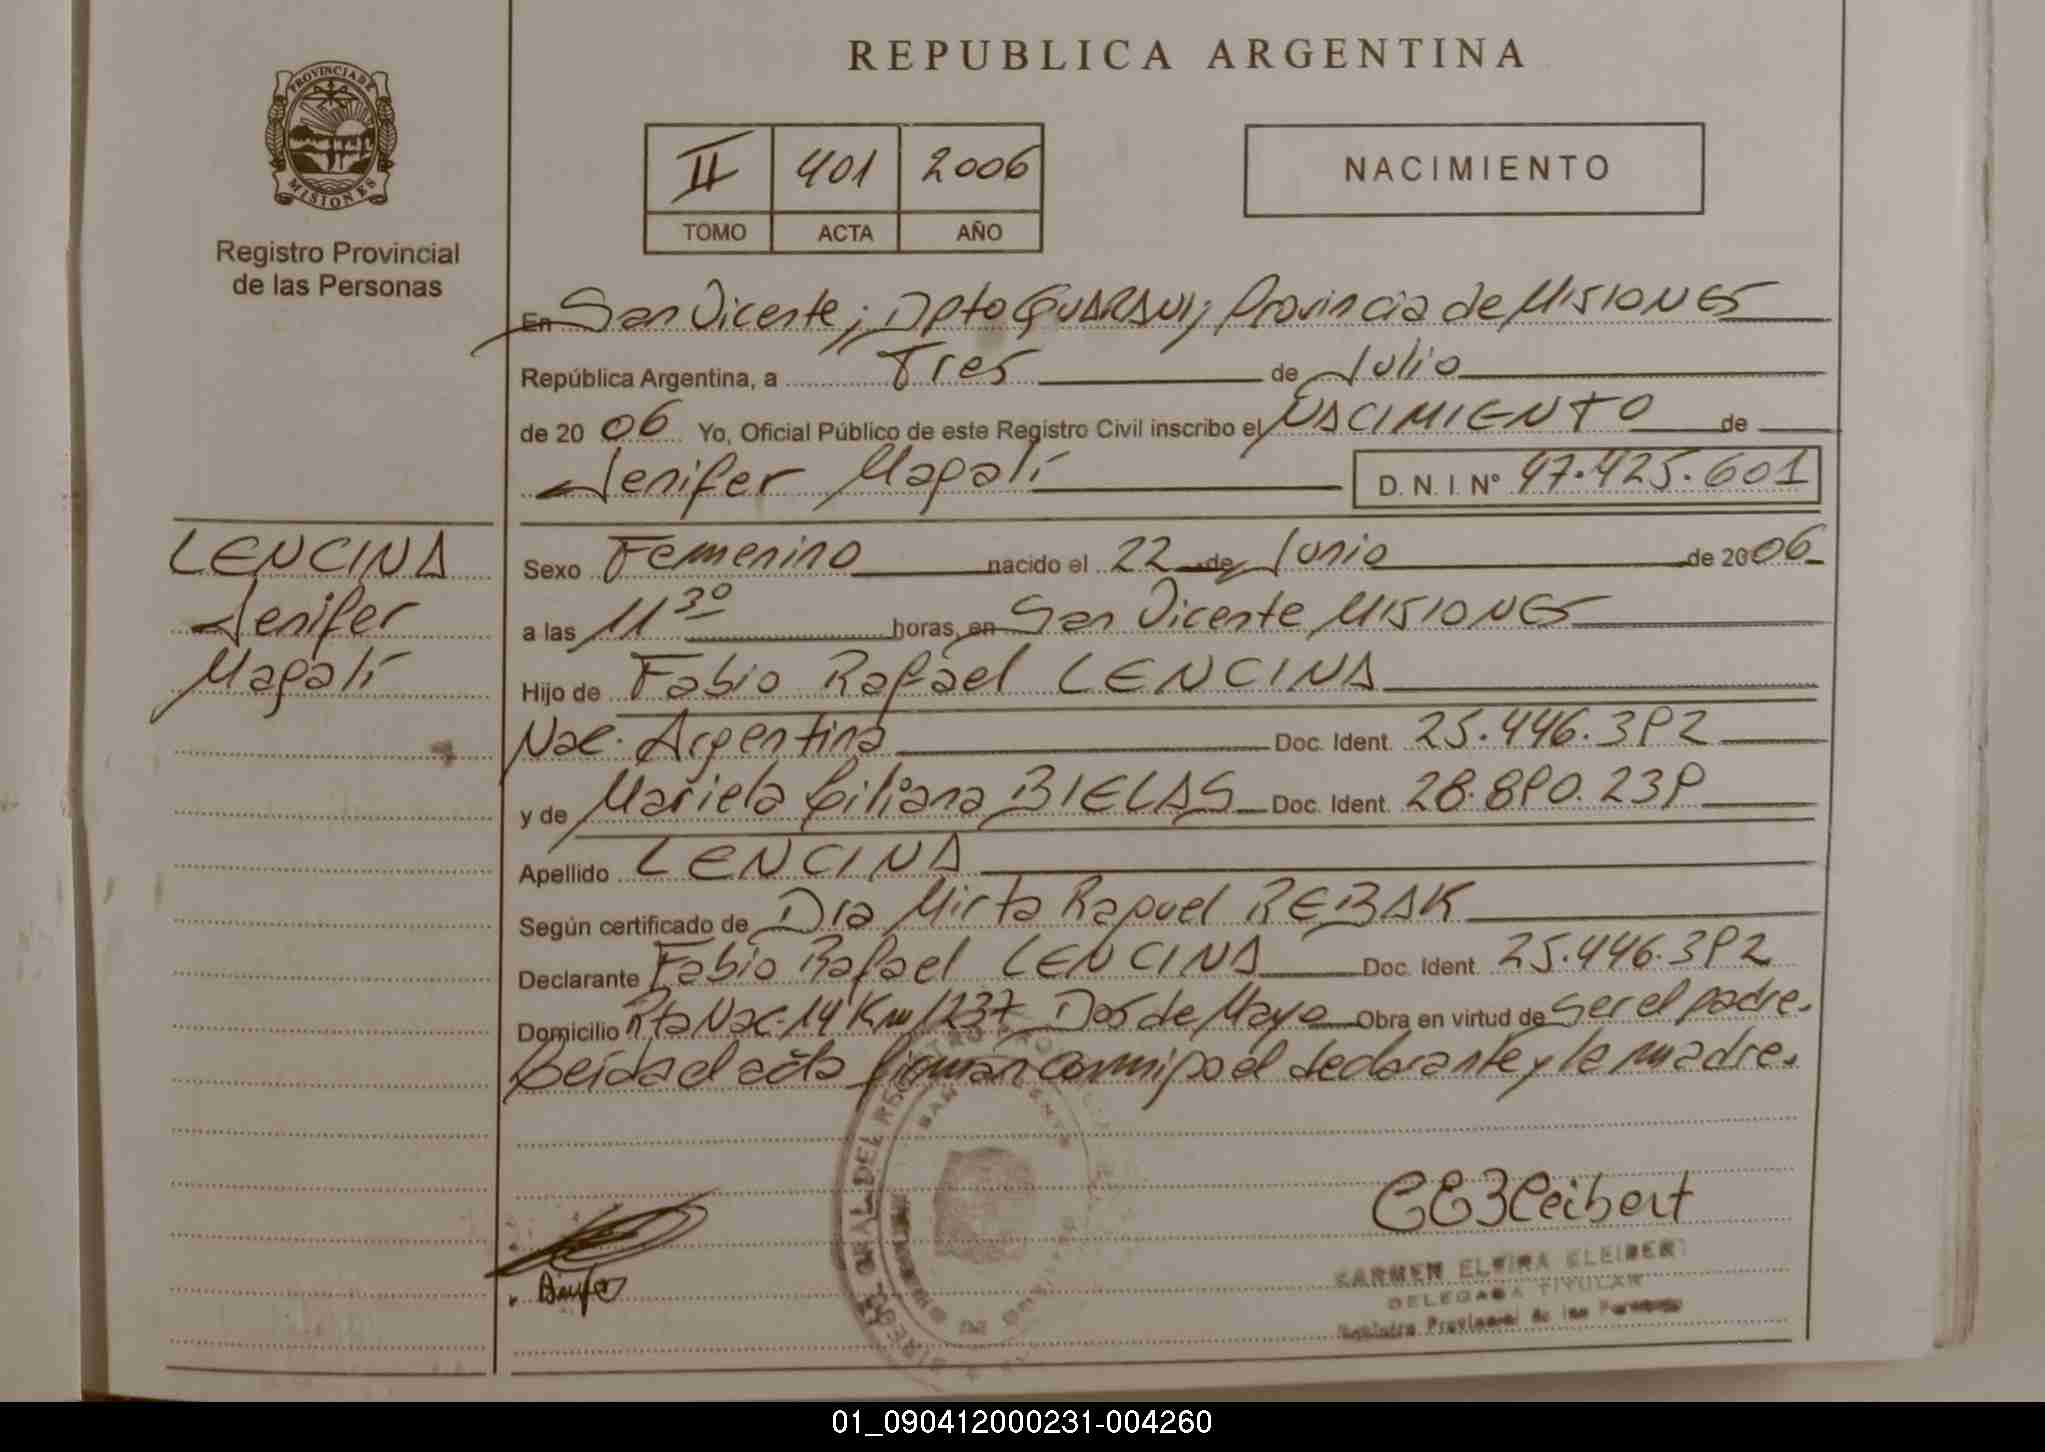 REPUBLICA ARGENTINA
PROVINCIA DE MISIONES
Registro Provincial
de las Personas
II 401 2006
TOMO ACTA AÑO
NACIMIENTO
En San Vicente; Dpto GUARANI; Provincia de MISIONES
República Argentina, a Tres de Julio
de 2006 Yo, Oficial Público de este Registro Civil inscribo el NACIMIENTO de
Jenifer Magalí D. N. I. N° 47.425.601
LENCINA
Jenifer
Magalí
Sexo Femenino nacido el 22 de Junio de 2006
a las 11 30 horas, en San Vicente MISIONES
Hijo de Fabio Rafael LENCINA
Nac. Argentina Doc. Ident. 25.446.392
y de Mariela Liliana BIELAS Doc. Ident. 28.890.239
Apellido LENCINA
Según certificado de Dra Mirta Raquel REBAK
Declarante Fabio Rafael LENCINA Doc. Ident. 25.446.392
Domicilio Rta Nac. 14 Km 1237 Dos de Mayo Obra en virtud de Ser el padre.
Leída el acta firman conmigo el declarante y la madre.
CEBleibert
CARMEN ELVIRA BLEIBERT
DELEGADA TITULAR
Registro Provincial de las Personas
01_090412000231-004260